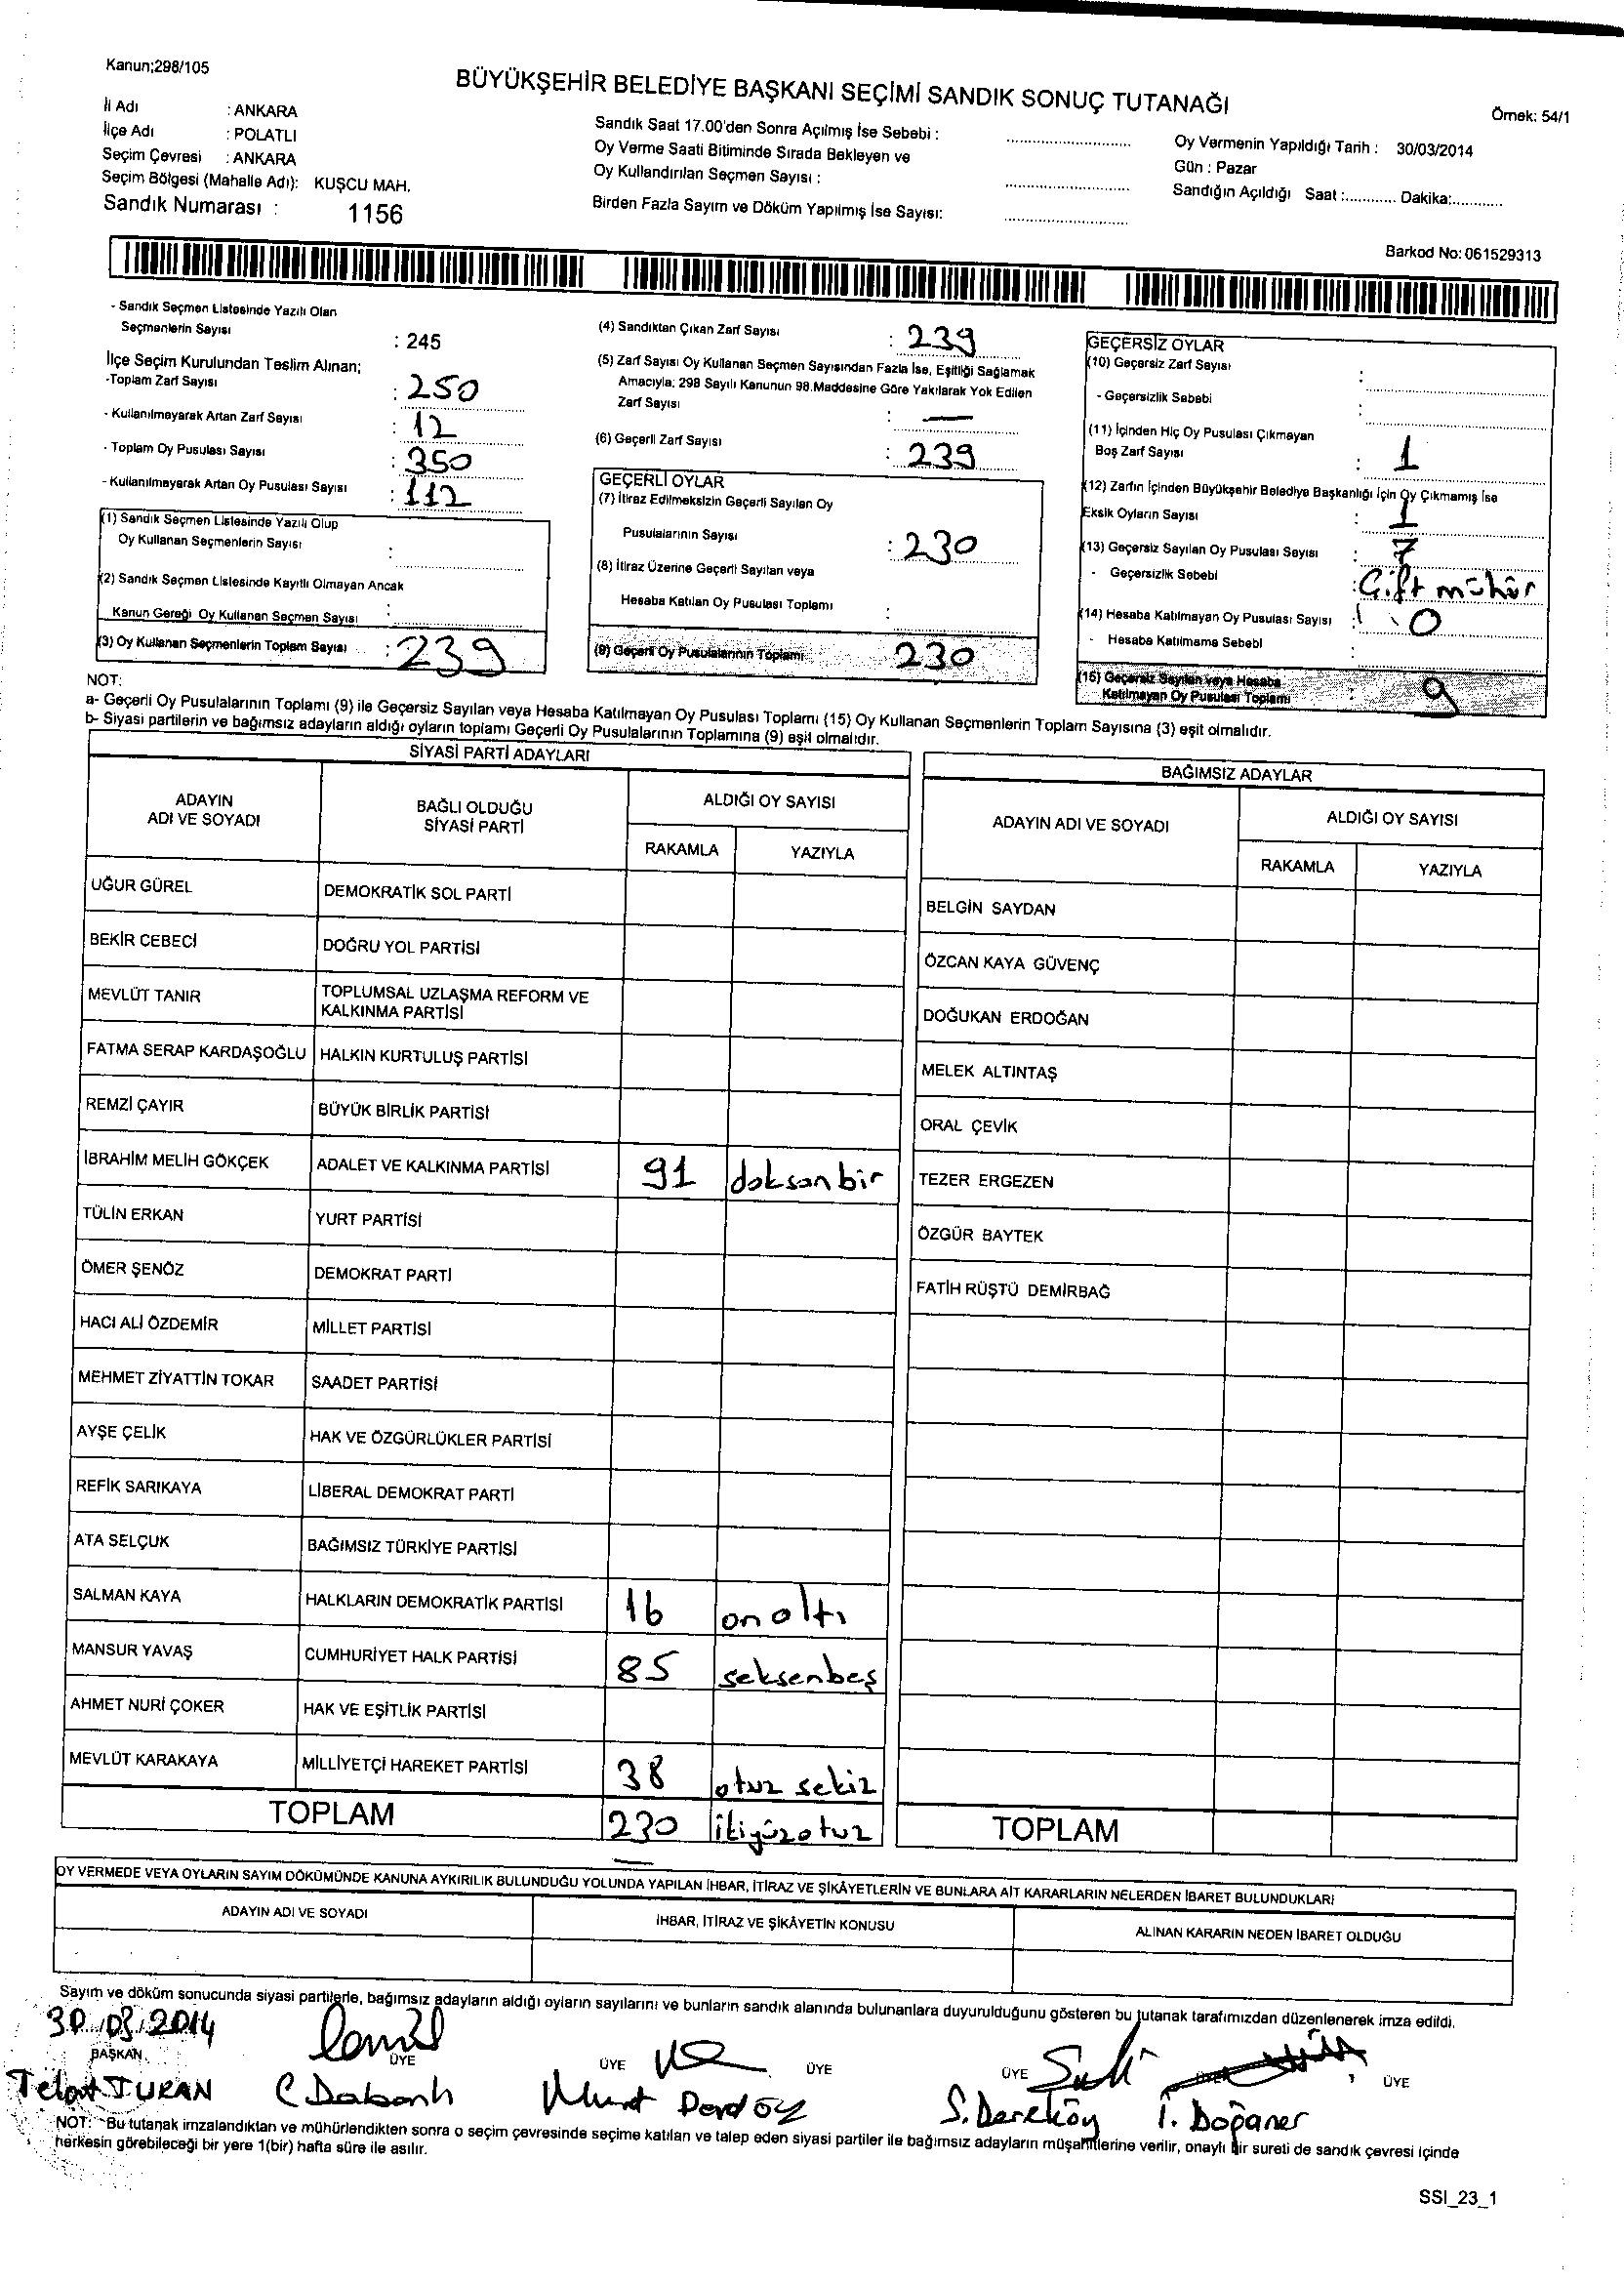 Kanun;298/105
BÜYÜKŞEHİR BELEDİYE BAŞKANI SEÇİMİ SANDIK SONUÇ TUTANAĞI
Örnek: 54/1
İl Adı : ANKARA
İlçe Adı : POLATLI
Seçim Çevresi : ANKARA
Seçim Bölgesi (Mahalle Adı): KUŞCU MAH.
Sandık Numarası : 1156
Sandık Saat 17.00'den Sonra Açılmış İse Sebebi :
Oy Verme Saati Bitiminde Sırada Bekleyen ve
Oy Kullandırılan Seçmen Sayısı :
Birden Fazla Sayım ve Döküm Yapılmış İse Sayısı:
Oy Vermenin Yapıldığı Tarih : 30/03/2014
Gün : Pazar
Sandığın Açıldığı Saat :............ Dakika:...........
Barkod No: 061529313
- Sandık Seçmen Listesinde Yazılı Olan
Seçmenlerin Sayısı : 245
İlçe Seçim Kurulundan Teslim Alınan;
-Toplam Zarf Sayısı : 250
- Kullanılmayarak Artan Zarf Sayısı : 12
- Toplam Oy Pusulası Sayısı : 350
- Kullanılmayarak Artan Oy Pusulası Sayısı : 112
(1) Sandık Seçmen Listesinde Yazılı Olup
Oy Kullanan Seçmenlerin Sayısı :
(2) Sandık Seçmen Listesinde Kayıtlı Olmayan Ancak
Kanun Gereği Oy Kullanan Seçmen Sayısı :
(3) Oy Kullanan Seçmenlerin Toplam Sayısı : 239
(4) Sandıktan Çıkan Zarf Sayısı : 239
(5) Zarf Sayısı Oy Kullanan Seçmen Sayısından Fazla İse, Eşitliği Sağlamak
Amacıyla; 298 Sayılı Kanunun 98.Maddesine Göre Yakılarak Yok Edilen
Zarf Sayısı : —
(6) Geçerli Zarf Sayısı : 239
GEÇERLİ OYLAR
(7) İtiraz Edilmeksizin Geçerli Sayılan Oy
Pusulalarının Sayısı : 230
(8) İtiraz Üzerine Geçerli Sayılan veya
Hesaba Katılan Oy Pusulası Toplamı :
(9) Geçerli Oy Pusulalarının Toplamı 230
GEÇERSİZ OYLAR
(10) Geçersiz Zarf Sayısı :
- Geçersizlik Sebebi :
(11) İçinden Hiç Oy Pusulası Çıkmayan
Boş Zarf Sayısı : 1
(12) Zarfın İçinden Büyükşehir Belediye Başkanlığı İçin Oy Çıkmamış İse
Eksik Oyların Sayısı : 1
(13) Geçersiz Sayılan Oy Pusulası Sayısı : 7
- Geçersizlik Sebebi : Çift mühür
(14) Hesaba Katılmayan Oy Pusulası Sayısı : 0
- Hesaba Katılmama Sebebi :
(15) Geçersiz Sayılan veya Hesaba
Katılmayan Oy Pusulası Toplamı : 9
NOT:
a- Geçerli Oy Pusulalarının Toplamı (9) ile Geçersiz Sayılan veya Hesaba Katılmayan Oy Pusulası Toplamı (15) Oy Kullanan Seçmenlerin Toplam Sayısına (3) eşit olmalıdır.
b- Siyasi partilerin ve bağımsız adayların aldığı oyların toplamı Geçerli Oy Pusulalarının Toplamına (9) eşit olmalıdır.
SİYASİ PARTİ ADAYLARI
ADAYIN ADI VE SOYADI
BAĞLI OLDUĞU SİYASİ PARTİ
ALDIĞI OY SAYISI
RAKAMLA YAZIYLA
UĞUR GÜREL DEMOKRATİK SOL PARTİ
BEKİR CEBECİ DOĞRU YOL PARTİSİ
MEVLÜT TANIR TOPLUMSAL UZLAŞMA REFORM VE
KALKINMA PARTİSİ
FATMA SERAP KARDAŞOĞLU HALKIN KURTULUŞ PARTİSİ
REMZİ ÇAYIR BÜYÜK BİRLİK PARTİSİ
İBRAHİM MELİH GÖKÇEK ADALET VE KALKINMA PARTİSİ 91 doksanbir
TÜLİN ERKAN YURT PARTİSİ
ÖMER ŞENÖZ DEMOKRAT PARTİ
HACI ALİ ÖZDEMİR MİLLET PARTİSİ
MEHMET ZİYATTİN TOKAR SAADET PARTİSİ
AYŞE ÇELİK HAK VE ÖZGÜRLÜKLER PARTİSİ
REFİK SARIKAYA LİBERAL DEMOKRAT PARTİ
ATA SELÇUK BAĞIMSIZ TÜRKİYE PARTİSİ
SALMAN KAYA HALKLARIN DEMOKRATİK PARTİSİ 16 on altı
MANSUR YAVAŞ CUMHURİYET HALK PARTİSİ 85 seksenbeş
AHMET NURİ ÇOKER HAK VE EŞİTLİK PARTİSİ
MEVLÜT KARAKAYA MİLLİYETÇİ HAREKET PARTİSİ 38 otuz sekiz
TOPLAM 230 ikiyüzotuz
BAĞIMSIZ ADAYLAR
ADAYIN ADI VE SOYADI
ALDIĞI OY SAYISI
RAKAMLA YAZIYLA
BELGİN SAYDAN
ÖZCAN KAYA GÜVENÇ
DOĞUKAN ERDOĞAN
MELEK ALTINTAŞ
ORAL ÇEVİK
TEZER ERGEZEN
ÖZGÜR BAYTEK
FATİH RÜŞTÜ DEMİRBAĞ
TOPLAM
OY VERMEDE VEYA OYLARIN SAYIM DÖKÜMÜNDE KANUNA AYKIRILIK BULUNDUĞU YOLUNDA YAPILAN İHBAR, İTİRAZ VE ŞİKÂYETLERİN VE BUNLARA AİT KARARLARIN NELERDEN İBARET BULUNDUKLARI
ADAYIN ADI VE SOYADI İHBAR, İTİRAZ VE ŞİKÂYETİN KONUSU ALINAN KARARIN NEDEN İBARET OLDUĞU
Sayım ve döküm sonucunda siyasi partilerle, bağımsız adayların aldığı oyların sayılarını ve bunların sandık alanında bulunanlara duyurulduğunu gösteren bu tutanak tarafımızdan düzenlenerek imza edildi.
30/03/2014
BAŞKAN ÜYE ÜYE ÜYE ÜYE ÜYE
Telat TURAN C Dabanlı Murat S. Dereköy İ. Doğaner
NOT: Bu tutanak imzalandıktan ve mühürlendikten sonra o seçim çevresinde seçime katılan ve talep eden siyasi partiler ile bağımsız adayların müşahitlerine verilir, onaylı bir sureti de sandık çevresi içinde
herkesin görebileceği bir yere 1(bir) hafta süre ile asılır.
SSI_23_1